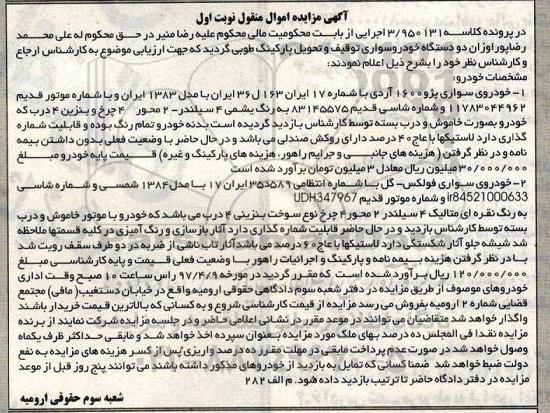 آگهی مزایده اموال منقول نوبت اول
در پرونده کلاسه ۳/۹۵۰۱۳۱ اجرایی از بابت محکومیت مالی محکوم علیه رضا منیر در حق محکوم له علی محمد
رضاپور اوزان دو دستگاه خودروسواری توقیف و تحویل پارکینگ طوبی گردید که جهت ارزیابی موضوع به کارشناس ارجاع
و کارشناس نظر خود را بشرح ذیل اعلام نمودند:
مشخصات خودرو:
۱- خودروی سواری پژو ۱۶۰۰ آردی با شماره ۱۷ ایران ۱۶۳ ل ۳۶ ایران با مدل ۱۳۸۳ ایران و با شماره موتور قدیم
۱۱۷۸۳۰۴۴۹۶۲ و شماره شاسی قدیم ۸۳۱۴۵۵۷۵ به رنگ یشمی ۴ سیلندر- ۲ محور ۴ چرخ و بنزین ۴ درب که
خودرو بصورت خاموش و درب بسته توسط کارشناس بازدید گردیده است بدنه خودرو تمام رنگ بوده و قابلیت شماره
گذاری دارد لاستیکها با عاج ۴۰ درصد دارای روکش صندلی می باشد و در حال حاضر با وضعیت فعلی بدون داشتن بیمه
نامه و در نظر گرفتن (هزینه های جانبی و جرایم راهور، هزینه های پارکینگ و غیره) قیمت پایه خودرو مبلغ
۳۰/۰۰۰/۰۰۰ میلیون ریال معادل ۳ میلیون تومان برآورد شده است
۲- خودروی سواری فولکس- گل با شماره انتظامی ۳۵د۵۸۹ ایران ۱۷ با مدل ۱۳۸۴ شمسی و شماره شاسی
ir84521000633 و شماره موتور قدیم UDH347967
به رنگ نقره ای متالیک ۴ سیلندر ۲ محور ۴ چرخ نوع سوخت بنزینی ۴ درب می باشد که خودرو با موتور خاموش و درب
بسته توسط کارشناس بازدید و در حال حاضر قابلیت شماره گذاری دارد آثار بازسازی و رنگ آمیزی در کلیه قسمتها ملاحظه
شد شیشه جلو آثار شکستگی دارد لاستیکها با عاج ۶۰ درصد می باشد آثار تاب ناشی از ضربه در دو طرف سقف رویت شد
با در نظر گرفتن هزینه بیمه نامه و پارکینگ و اجرائیات راهور با وضعیت فعلی قیمت و پایه کارشناسی مبلغ
۱۲۰/۰۰۰/۰۰۰ ریال برآورد شده است که مقرر گردید در مورخه ۹۷/۴/۹ راس ساعت ۱۰ صبح وقت اداری
خودروهای موصوف از طریق مزایده در دفتر شعبه سوم دادگاهی حقوقی ارومیه واقع در خیابان دستغیب (مافی) مجتمع
قضایی شماره ۲ ارومیه بفروش می رسد مزایده از قیمت کارشناسی شروع و به کسانی که بالاترین قیمت خریدار باشند
واگذار خواهد شد متقاضیان می توانند در موعد مقرر در نشانی اعلامی حاضر و در جلسه مزایده شرکت نمایند از برنده
مزایده نقدا فی المجلس ده درصد بهای ملک مورد مزایده بعنوان سپرده اخذ خواهد شد و مابقی حداکثر ظرف یکماه
وصول خواهد شد در صورت عدم پرداخت مابقی در مهلت مقرر ده درصد واریزی پس از کسر هزینه های مزایده به نفع
دولت ضبط خواهد شد ضمنا کسانی که تمایل به بازدید از خودروهای مذکور داشته باشند می توانند پنج روز قبل از موعد
مزایده در دفتر دادگاه حاضر تا ترتیب بازدید داده شود. م الف ۲۸۲
شعبه سوم حقوقی ارومیه